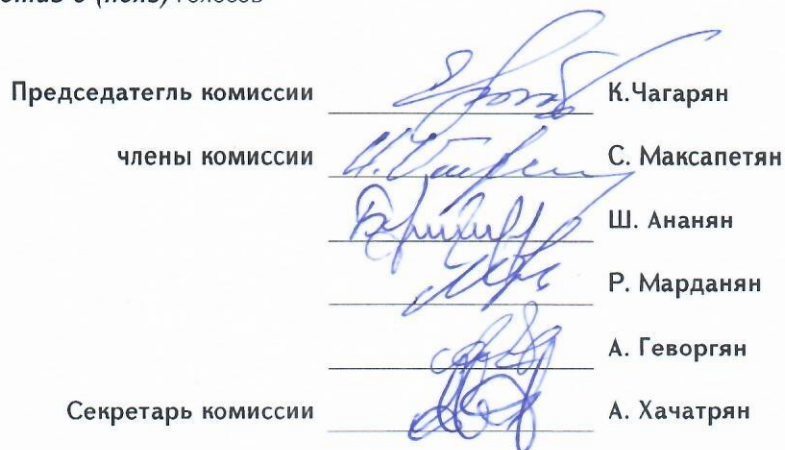 голосов
Председатегль комиссии К.Чагарян
члены комиссии С. Максапетян
Ш. Ананян
Р. Марданян
А. Геворгян
Секретарь комиссии А. Хачатрян